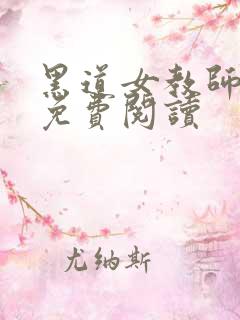 黑道女教師
免費閱讀
尤纳斯